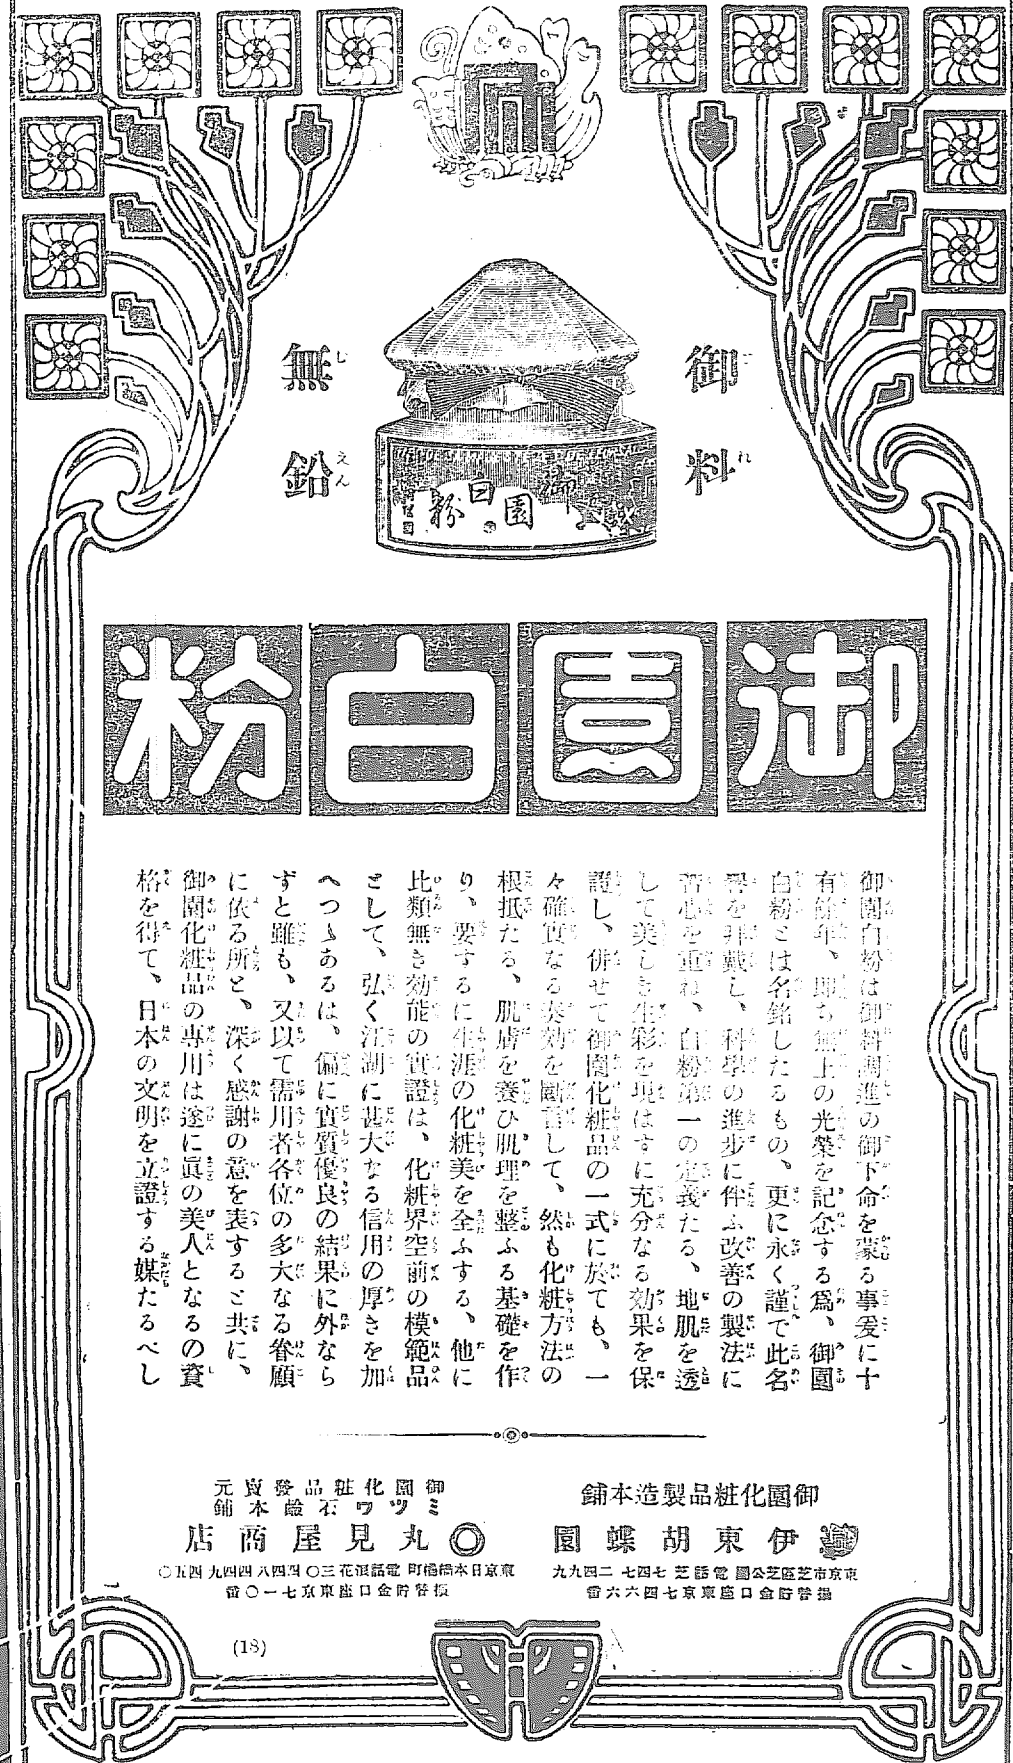 御料
無鉛
御園白粉
御園白粉
御園白粉は御料調進の御下命を蒙る事爰に十
有餘年、即ち無上の光榮を記念する爲、御園
白粉とは名銘したるもの、更に永く謹で此名
譽を拜戴し、科學の進步に伴ふ改善の製法に
苦心を重ね、白粉第一の定義たる、地肌を透
して美しき生彩を現はすに充分なる効果を保
證し、併せて御園化粧品の一式に於ても、一
々確實なる奏効を斷言して、然も化粧方法の
根抵たる、肌膚を養ひ肌理を整ふる基礎を作
り、要するに生涯の化粧美を全ふする、他に
比類無き効能の實證は、化粧界空前の模範品
として、弘く江湖に甚大なる信用の厚きを加
へつゝあるは、偏に實質優良の結果に外なら
ずと雖も、又以て需用者各位の多大なる眷顧
に依る所と、深く感謝の意を表すると共に、
御園化粧品の專用は遂に眞の美人となるの資
格を得て、日本の文明を立證する媒たるべし
御園化粧品製造本舗
伊東胡蝶園
東京市芝區芝公園 電話芝 七四七 二四九九
振替貯金口座東京七四六六番
御園化粧品發賣元
ミツワ石鹼本舗
丸見屋商店
東京日本橋橘町 電話浪花三〇四 四四八 四四九 四五〇
振替貯金口座東京七一〇番
(18)